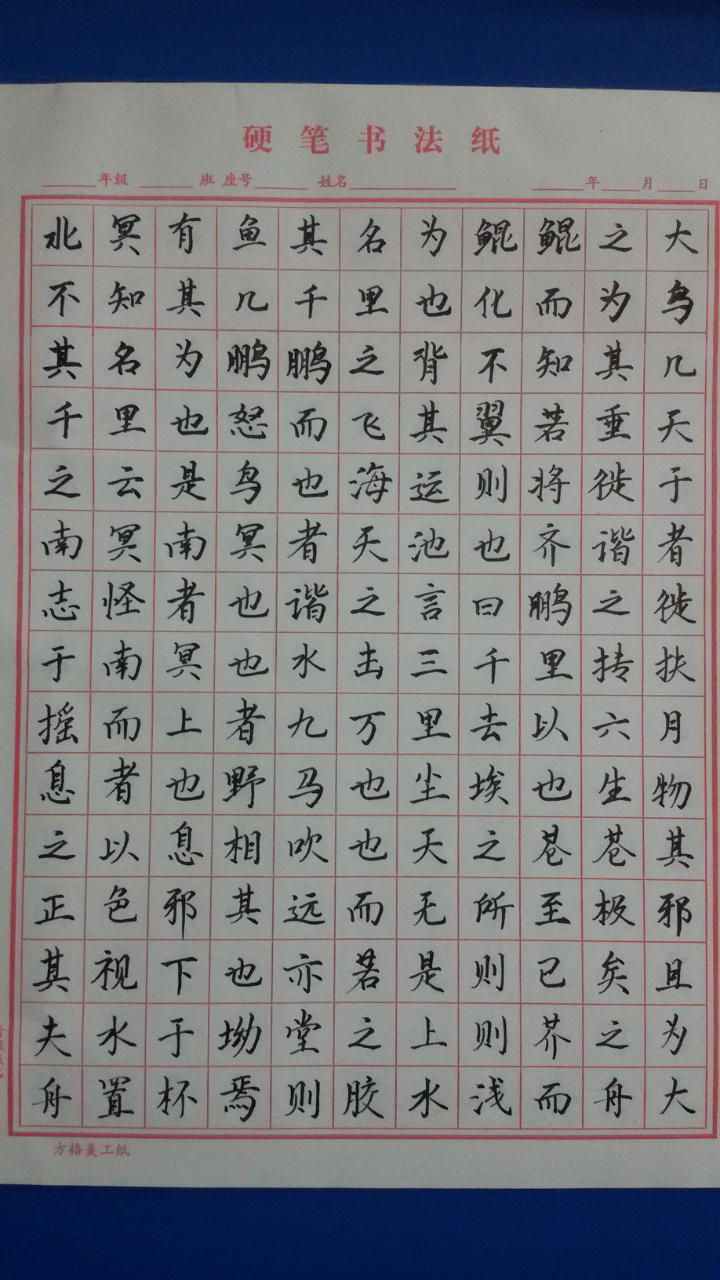 硬笔书法纸
年级 班 座号 姓名 年 月 日
北冥有鱼其名为鲲鲲之大
不知其几千里也化而为鸟
其名为鹏鹏之背不知其几
千里也怒而飞其翼若垂天
之云是鸟也海运则将徙于
南冥南冥者天池也齐谐者
志怪者也谐之言曰鹏之徙
于南冥也水击三千里抟扶
摇而上者九万里去以六月
息者也野马也尘埃也生物
之以息相吹也天之苍苍其
正色邪其远而无所至极邪
其视下也亦若是则已矣且
夫水于坳堂之上则芥之为
舟置杯焉则胶水浅而舟大
方格美工纸